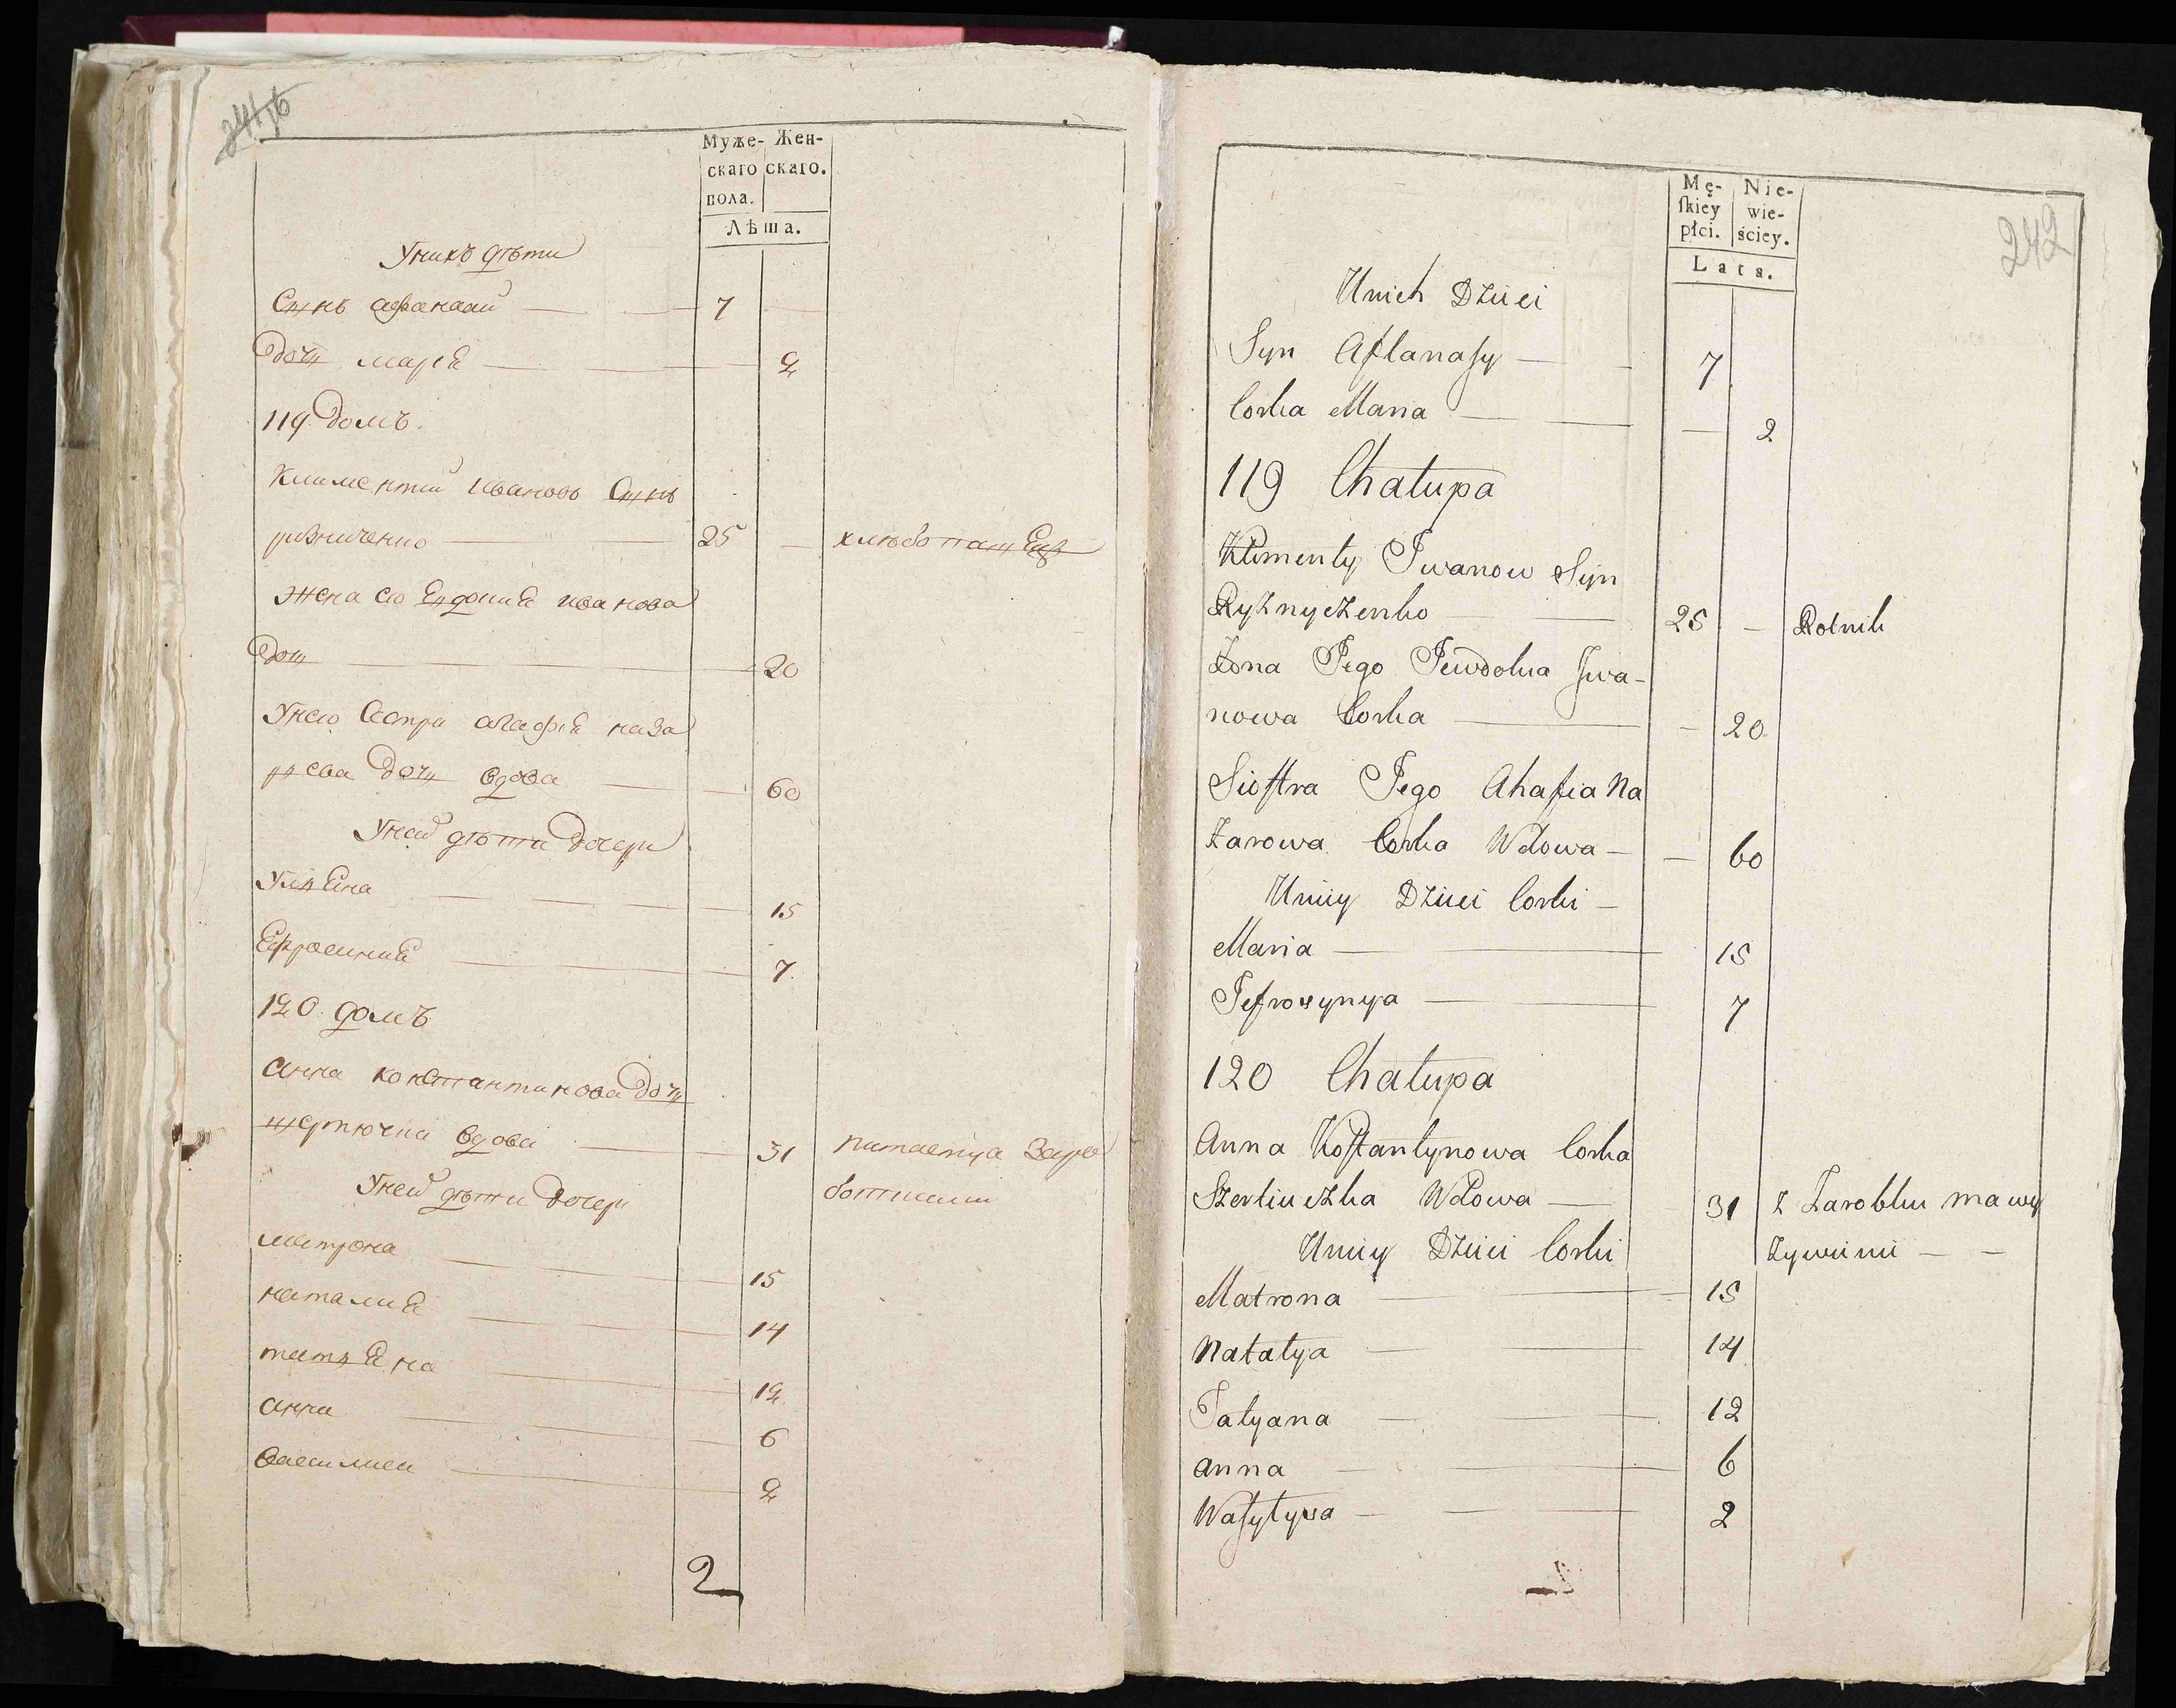 Муже- Жен-
скаго скаго.
пола.
Лѣта.
Уникъ дѣти
Сынъ афанасий 7
Дочь марія 2
119 Домъ.
Климентий Ивановъ Сынъ
резниченко 25 хлебопашецъ
жена его Евдокия ивано­ва
Дочь 20
Унего Сестра агафія наза
рева Дочь вдова 60
Уней дѣти дочери
15
Ефросиния 7
120 домъ
Анна константинова Дочь
шертючка вдова 31 питается зара
ботками
Уней дѣти дочери
матрона 15
наталия 14
татьяна 12
анна 6
василиса 2
2
242
Mę- Nie-
ſkiey wie-
płci. ściey.
Lata.
Unich Dzieci
Syn Aftanaſy 7
Corka Maria 2
119 Chałupa
Klimenty Iwanow Syn
Ryznyczenko 25 Rolnik
Zona Jego Jewdokia Iwa-
nowa Corka 20
Sioſtra Jego Ahafia Na
zarowa Corka Wdowa 60
Uniey Dzieci Corki
Maria 15
Jefrozynya 7
120 Chałupa
Anna Koſtantynowa Corka
Szertiuczka Wdowa 31 z Zarobku ma wy
Uniey Dzieci Corki żywinie
Matrona 15
Natalya 14
Tatyana 12
Anna 6
Waſylysa 2